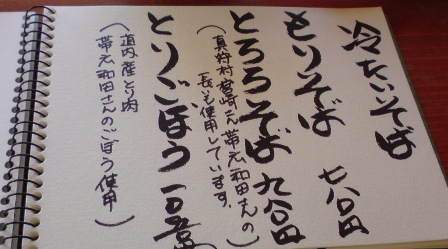 冷たいそば
もりそば 七八〇円
とろろそば 九八〇円
(真狩村宮崎さん帯広和田さんの
長いも使用しています。)
とりごぼう 一〇
(道内産とり肉
帯広和田さんのごぼう使用)